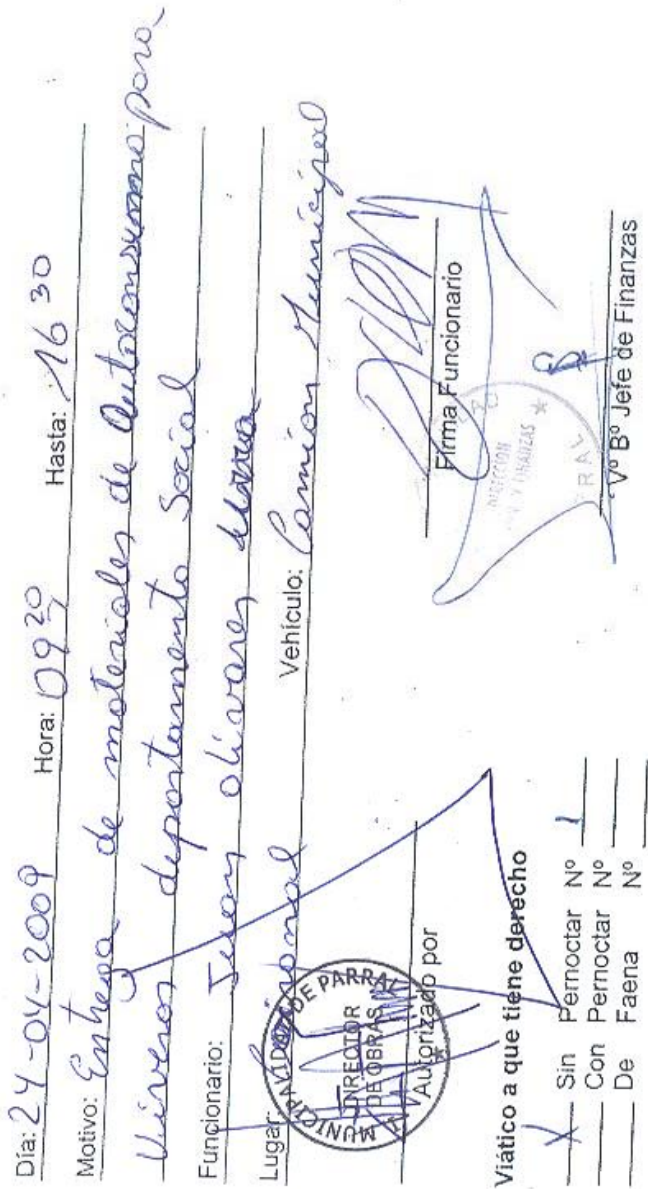 Día: 24-04-2009 Hora: 09 20 Hasta: 16 30
Motivo: Entrega de materiales de Autoconsumo para
departamento Social
Funcionario: Juan Olivares
Lugar: Vehículo: Camión Municipal
MUNICIPALIDAD DE PARRAL
DIRECTOR
DE OBRAS
Autorizado por
Firma Funcionario
DIRECCION
FINANZAS
Vº Bº Jefe de Finanzas
Viático a que tiene derecho
X Sin Pernoctar Nº 1
Con Pernoctar Nº
De Faena Nº